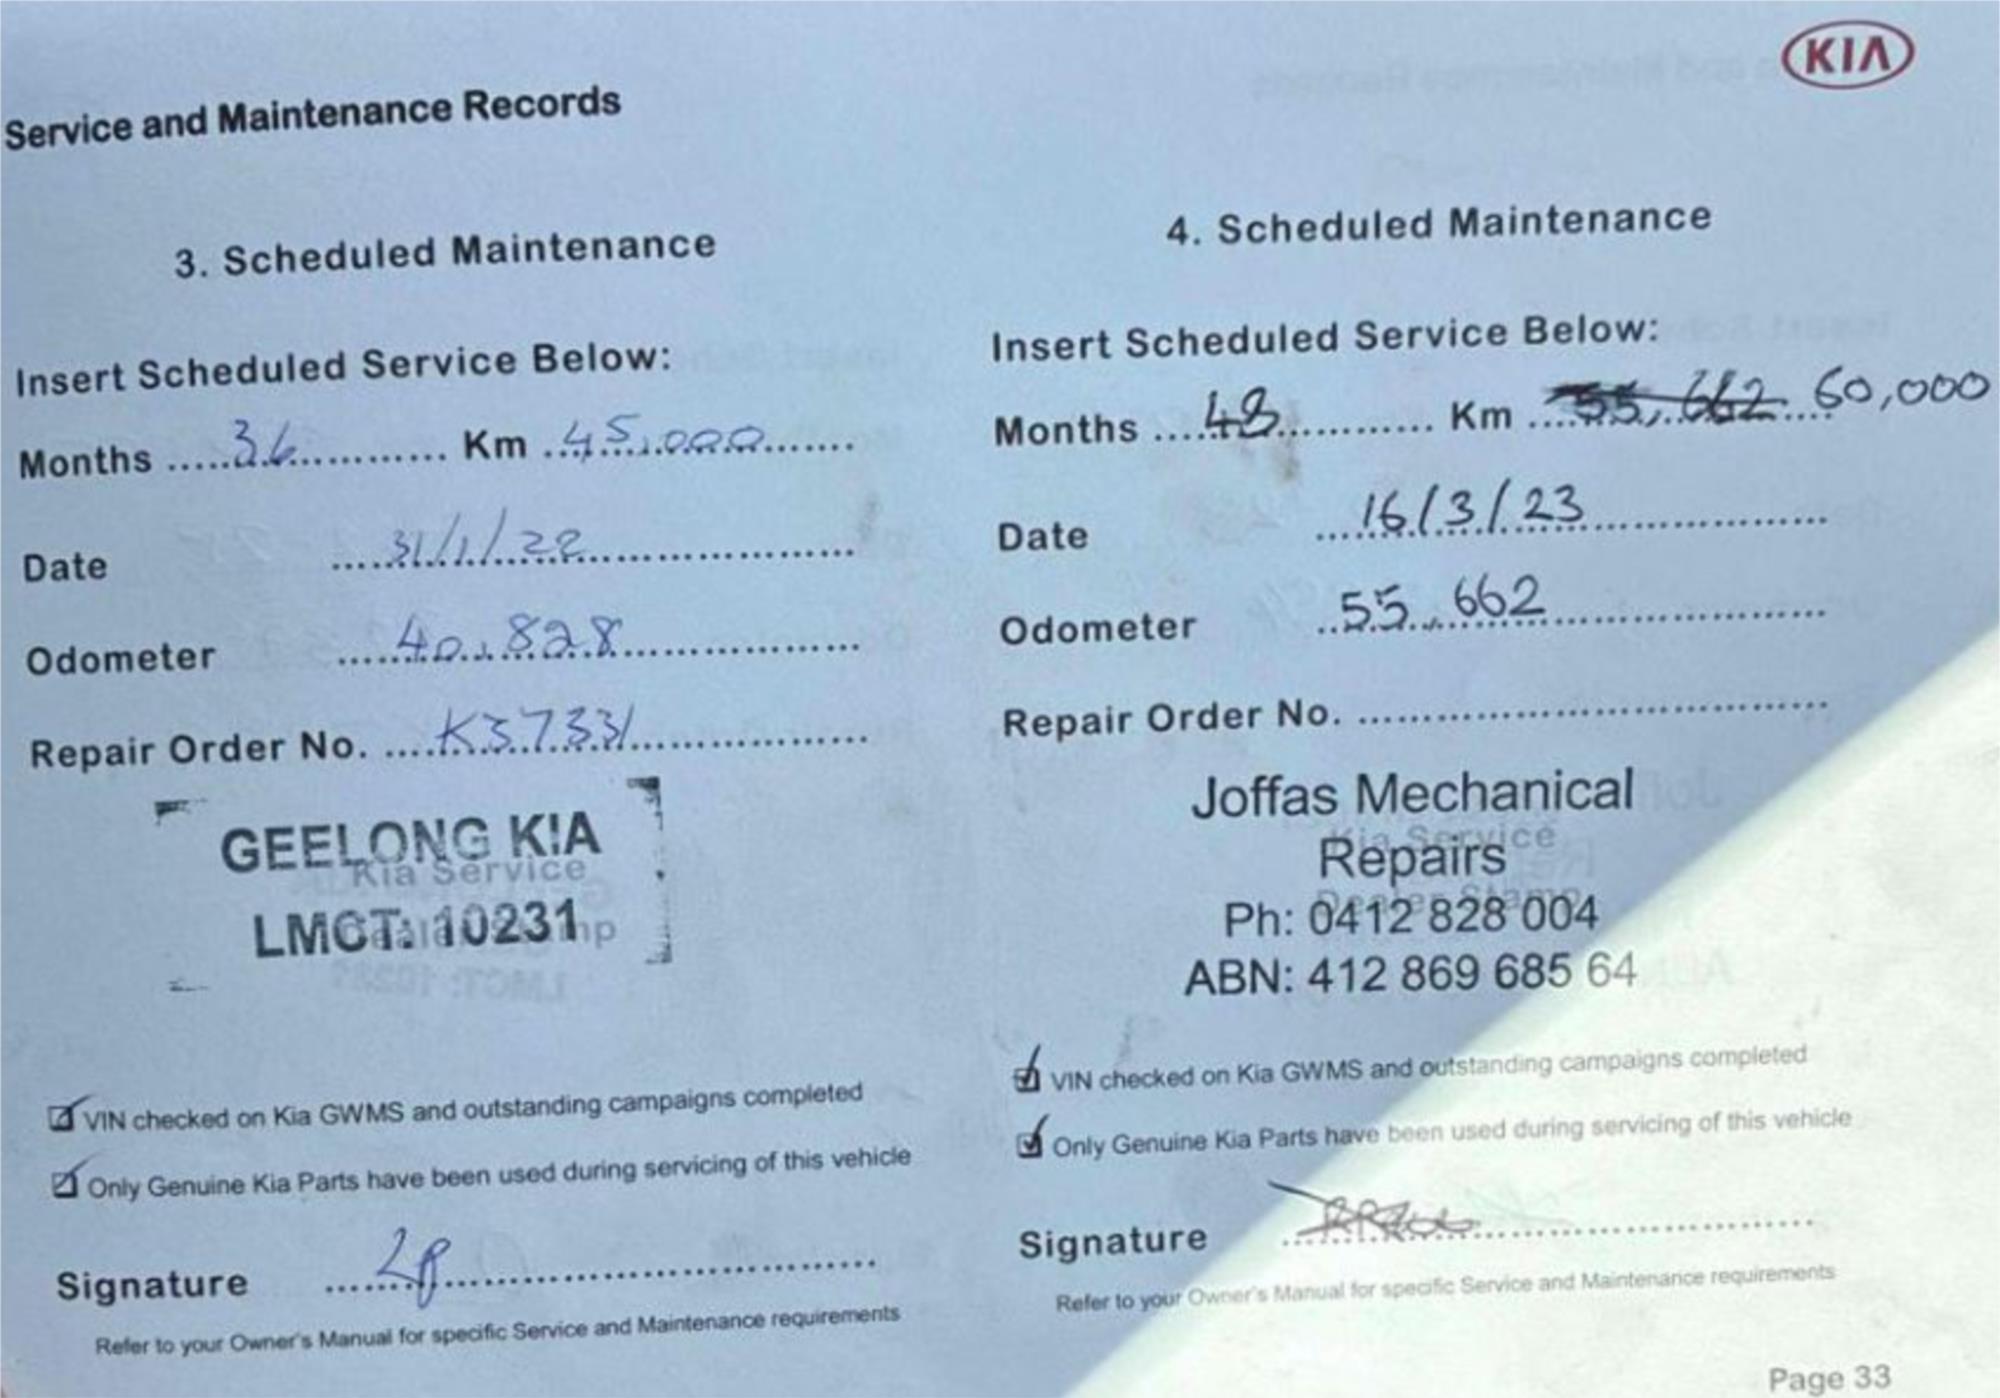 KIA
Service and Maintenance Records
3. Scheduled Maintenance
Insert Scheduled Service Below:
Months 36 Km 45,000
Date 31/1/22
Odometer 40,828
Repair Order No. K37331
GEELONG KIA
Kia Service
LMCT: 10231
VIN checked on Kia GWMS and outstanding campaigns completed
Only Genuine Kia Parts have been used during servicing of this vehicle
Signature
Refer to your Owner's Manual for specific Service and Maintenance requirements
4. Scheduled Maintenance
Insert Scheduled Service Below:
Months 48 Km 55,662 60,000
Date 16/3/23
Odometer 55,662
Repair Order No.
Joffas Mechanical
Kia Service
Repairs
Dealer Stamp
Ph: 0412 828 004
ABN: 412 869 685 64
VIN checked on Kia GWMS and outstanding campaigns completed
Only Genuine Kia Parts have been used during servicing of this vehicle
Signature
Refer to your Owner's Manual for specific Service and Maintenance requirements
Page 33